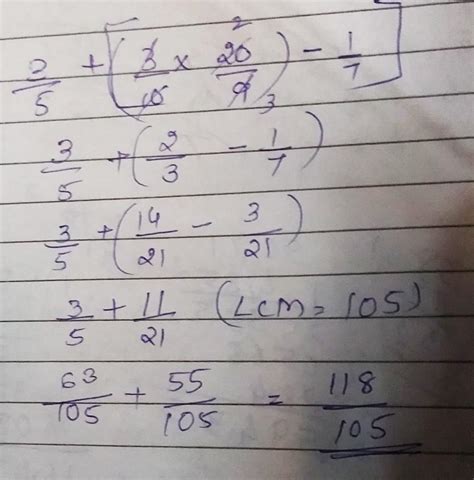 3/5 + [(3/10 × 20/9) - 1/7] 2 3
3/5 + (2/3 - 1/7)
3/5 + (14/21 - 3/21)
3/5 + 11/21 (LCM = 105)
63/105 + 55/105 = 118/105